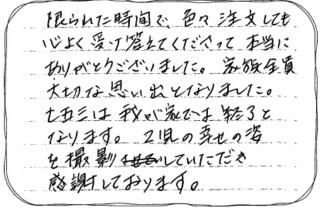 限られた時間で、色々注文しても
心よく受け答えてくださって本当に
ありがとうございました。家族全員
大切な思い出となりました。
七五三は我が家では終了と
なります。2児の幸せの姿
を撮影していただき
感謝しております。